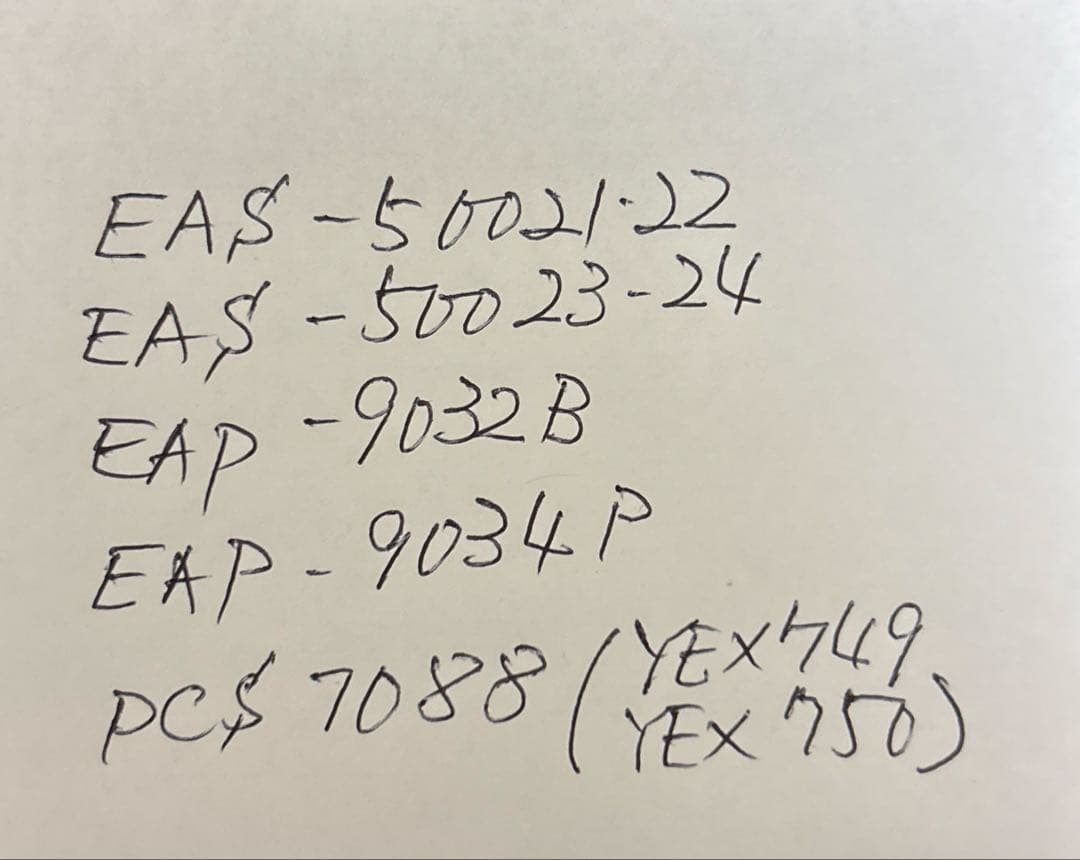 EAS-50021·22
EAS-50023-24
EAP-9032B
EAP-9034P
PCS 7088 (YEX749
YEX750)